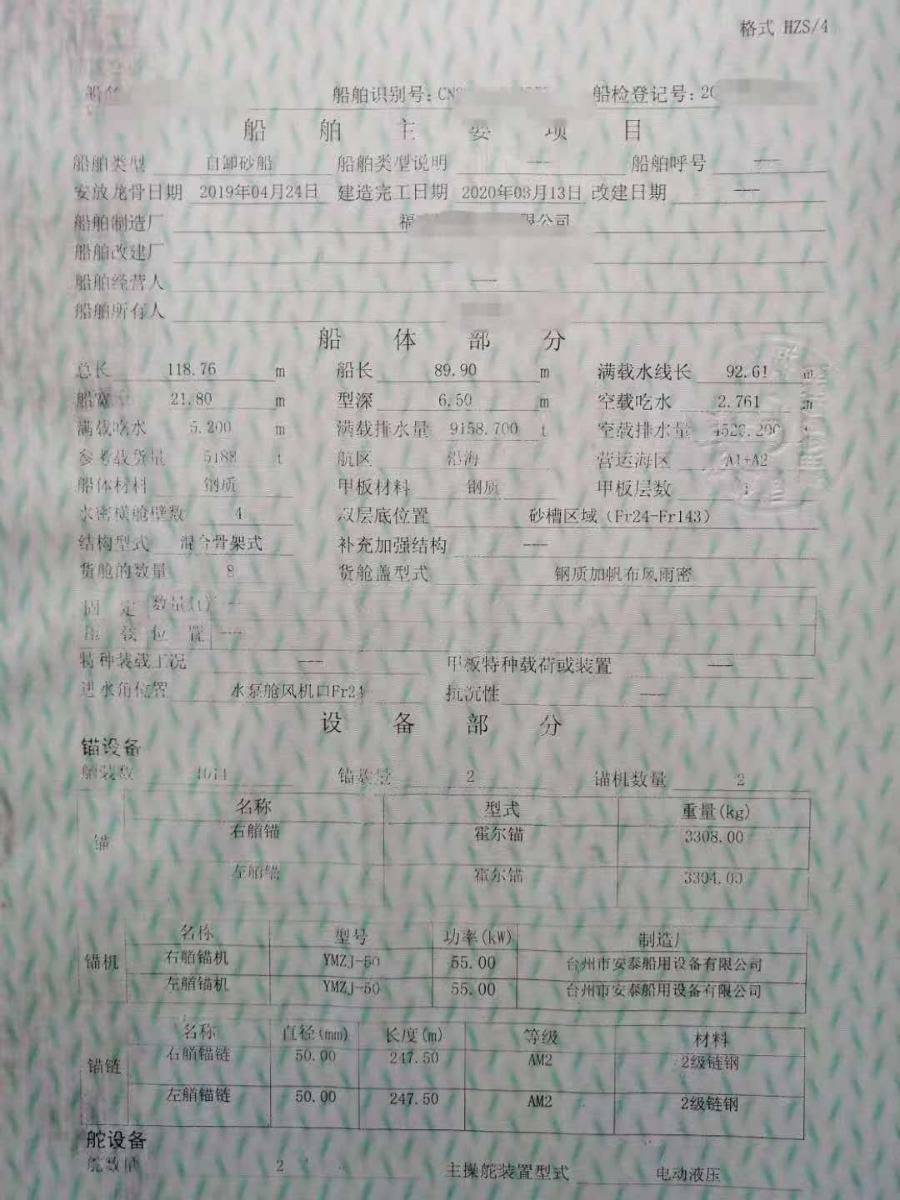 格式 HZS/4
船舶识别号:CN 船检登记号:20
船舶主要项目
船舶类型 自卸砂船 船舶类型说明 --- 船舶呼号 ---
安放龙骨日期 2019年04月24日 建造完工日期 2020年08月13日 改建日期 ---
船舶制造厂 福 限公司
船舶改建厂
船舶经营人 ---
船舶所有人
船体部分
总长 118.76 m 船长 89.90 m 满载水线长 92.61 m
船宽 21.80 m 型深 6.50 m 空载吃水 2.761 m
满载吃水 5.200 m 满载排水量 9158.700 t 空载排水量
参考载货量 5188 t 航区 沿海 营运海区 A1+A2
船体材料 钢质 甲板材料 钢质 甲板层数
水密横舱壁数 4 双层底位置 砂槽区域(Fr24-Fr143)
结构型式 混合骨架式 补充加强结构 ---
货舱的数量 8 货舱盖型式 钢质加帆布风雨密
固定 数量(t) ---
压载 位置 ---
特种装载工况 --- 甲板特种载荷或装置 ---
进水角位置 水泵舱风机口Fr24 抗沉性 ---
设备部分
锚设备
舾装数 锚数量 2 锚机数量 2
名称 型式 重量(kg)
锚
右艏锚 霍尔锚 3308.00
左艏锚 霍尔锚 3304.00
名称 型号 功率(kW) 制造厂
锚机
右艏锚机 YMZJ-50 55.00 台州市安泰船用设备有限公司
左艏锚机 YMZJ-50 55.00 台州市安泰船用设备有限公司
名称 直径(mm) 长度(m) 等级 材料
锚链
右艏锚链 50.00 247.50 AM2 2级链钢
左艏锚链 50.00 247.50 AM2 2级链钢
舵设备
舵数量 2 主操舵装置型式 电动液压